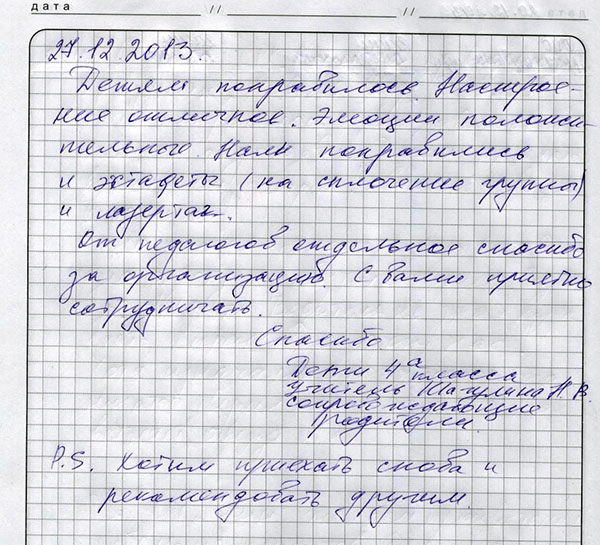 дата // //
27.12.2013.
Детям понравилось. Настрое-
ние отличное. Эмоции положи-
тельные. Нам понравились
и эстафеты (на сплочение группы)
и лазертаг.
От педагогов отдельное спасибо
за организацию. С вами приятно
сотрудничать.
Спасибо
Дети 4а класса
учитель Н. В.
сопровождающие
родители.
P.S. Хотим приехать снова и
рекомендовать другим.